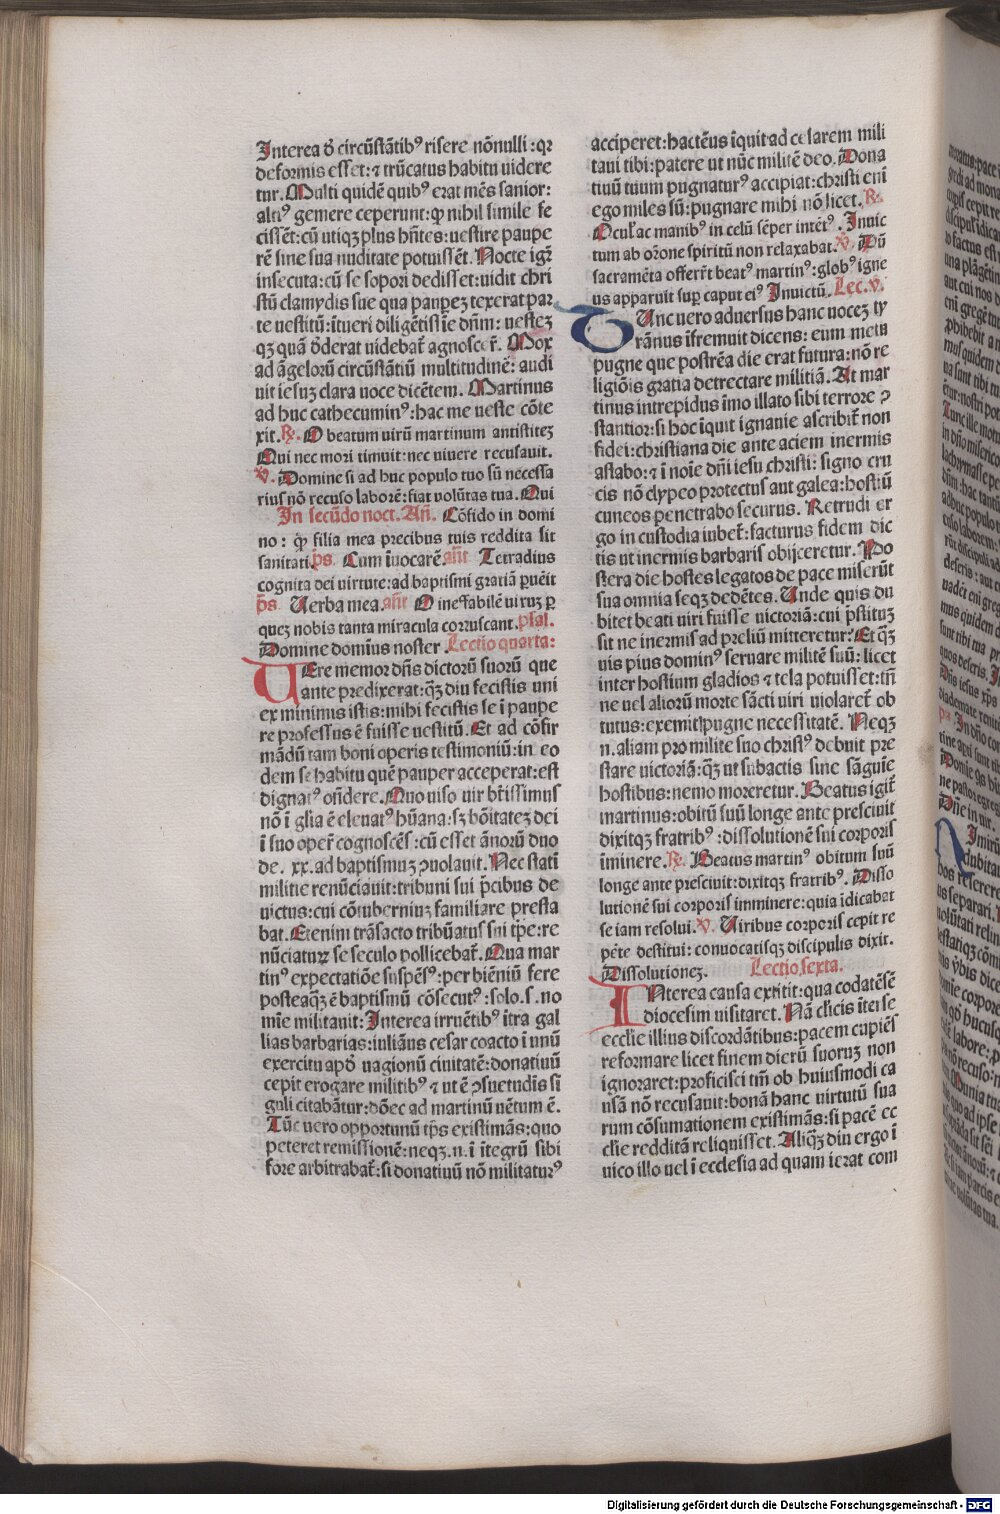 Interea d̄ circūstātibꝰ risere nōnulli: qꝛ
deformis esset: ⁊ trūcatus habitu videre
tur. Multi quidē quibꝰ erat mēs sanior:
altiꝰ gemere ceperunt: ꝙ nihil simile fe
cissēt: cū utiqꝫ plus hn̄tes: uestire paupe
rē sine sua nuditate potuissēt. Nocte igit̄
insecuta: cū se sopori dedisset: uidit chri
stū clamydis sue qua paupeꝫ texerat par
te uestitū: ītueri diligētissīe dn̄m: uesteꝫ
qꝫ quā d̄derat uidebat̄ agnoscer̄. Mox
ad āgelorū circūstātiū multitudinē: audi
uit iesuꝫ clara uoce dicētem. Martinus
ad huc cathecuminꝰ: hac me ueste cōte
xit. ℞. O beatum uirū martinum antistiteꝫ
Qui nec mori timuit: nec uiuere recusauit.
℣. Domine si ad huc populo tuo sū necessa
rius nō recuso laborē: fiat volūtas tua. Qui
In secūdo noct. Añ. Cōfido in domi
no: ꝙ filia mea precibus tuis reddita sit
sanitati. p̄s. Cum īuocarē. an̄t Tetradius
cognita dei virtute: ad baptismi gratiā ꝑuēit
p̄s. Uerba mea. an̄t O ineffabilē uiruꝫ ꝑ
queꝫ nobis tanta miracula corruscant. psal.
Domine domīus noster. Lectio quarta:
UEre memor dn̄s dictorū suorū que
ante predixerat: qꝫ diu fecistis uni
ex minimis istis: mihi fecistis se ī paupe
re professus ē fuisse uestitū. Et ad cōfir
mādū tam boni operis testimoniū: in eo
dem se habitu quē pauper acceperat: est
dignatꝰ on̄dere. Quo uiso uir bt̄issimus
nō ī gl̄ia ē eleuatꝰ hūana: sꝫ bōitateꝫ dei
ī suo oper̄ cognoscēs: cū esset ānorū duo
de. xx. ad baptismuꝫ ꝯuolauit. Nec stati
militie renūciauit: tribuni sui p̄cibus de
uictus: cui cōtuberniuꝫ familiare presta
bat. Etenim trāsacto tribūatus sui tp̄e: re
nūciaturꝫ se seculo pollicebat̄. Qua mar
tinꝰ expectatiōe suspēsꝰ: per biēniū fere
posteaqꝫ ē baptismū cōsecutꝰ: solo. s. no
mīe militauit: Interea irruētibꝰ ītra gal
lias barbarias: iuliāus cesar coacto ī unū
exercitu apd̄ uagionū ciuitatē: donatiuū
cepit erogare militibꝰ ⁊ ut ē ꝯsuetudīs si
guli citabātur: dōec ad martinū uētum ē.
Tūc uero opportunū tp̄s existimās: quo
peteret remissionē: neqꝫ. n. ī ītegrū sibi
fore arbitrabat̄: si donatiuū nō militaturꝰ
acciperet: hactēus īquit ad cesarem mili
taui tibi: patere ut nūc militē deo. Dona
tiuū tuum pugnaturꝰ accipiat: christi enī
ego miles sū: pugnare mihi nō licet. ℞.
Oculac̄ manibꝰ in celū sēper intētꝰ. Inuic
tum ab or̄one spiritū non relaxabat. ℣. Dū
sacramēta offerr̄t beatꝰ martinꝰ: globꝰ igne
us apparuit suꝑ caput eiꝰ Inuictū. Lec. v.
TUnc uero aduersus hanc uoceꝫ ty
rānus īfremuit dicens: eum metu
pugne que postrēa die erat futura: nō re
ligiōis gratia detrectare militiā. At mar
tinus intrepidus īmo illato sibi terrore ꝯ
stantior: si hoc īquit ignauie ascribit̄ non
fidei: christiana die ante aciem inermis
astabo: ⁊ ī noīe dn̄i iesu christi: signo cru
cis nō clypeo protectus aut galea: hostiū
cuneos penetrabo securus. Retrudi er
go in custodia iubet̄: facturus fidem dic
tis ut inermis barbaris obijceretur. Po
stera die hostes legatos de pace miserūt
sua omnia seqꝫ dedētes. Unde quis du
bitet beati uiri fuisse uictoriā: cui p̄stituꝫ
sit ne inermis ad preliū mitteretur? Et qꝫ
uis pius dominꝰ seruare militē suū: licet
inter hostium gladios ⁊ tela potuisset: tn̄
ne uel aliorū morte sācti uiri violaret̄ ob
tutus: exemit pugne necessitatē. Neqꝫ
n. aliam pro milite suo christꝰ debuit pre
stare uictoriā: qꝫ ut subactis sine sāguīe
hostibus: nemo moreretur. Beatus igit̄
martinus: obitū suū longe ante presciuit
dixitqꝫ fratribꝰ: dissolutionē sui corporis
īminere. ℞. Beatus martinꝰ obitum suū
longe ante presciuit: dixitqꝫ fratribꝰ. Disso
lutionē sui corporis imminere: quia īdicabat
se iam resolui. ℣. Uiribus corporis cepit re
pēte destitui: conuocatisqꝫ discipulis dixit.
Dissolutioneꝫ. Lectio sexta.
INterea causa extitit: qua codatēsē
diocesim uisitaret. Nā cl̄icis īter se
eccl̄ie illius discordātibus: pacem cupiēs
reformare licet finem dierū suoruꝫ non
ignoraret: proficisci tm̄ ob huiusmodi ca
usā nō recusauit: bonā hanc uirtutū sua
rum cōsumationem existimās: si pacē ec
cl̄ie redditā reliquisset. Aliqꝫ diu ergo ī
uico illo uel ī ecclesia ad quam ierat com
Digitalisierung gefördert durch die Deutsche Forschungsgemeinschaft - DFG